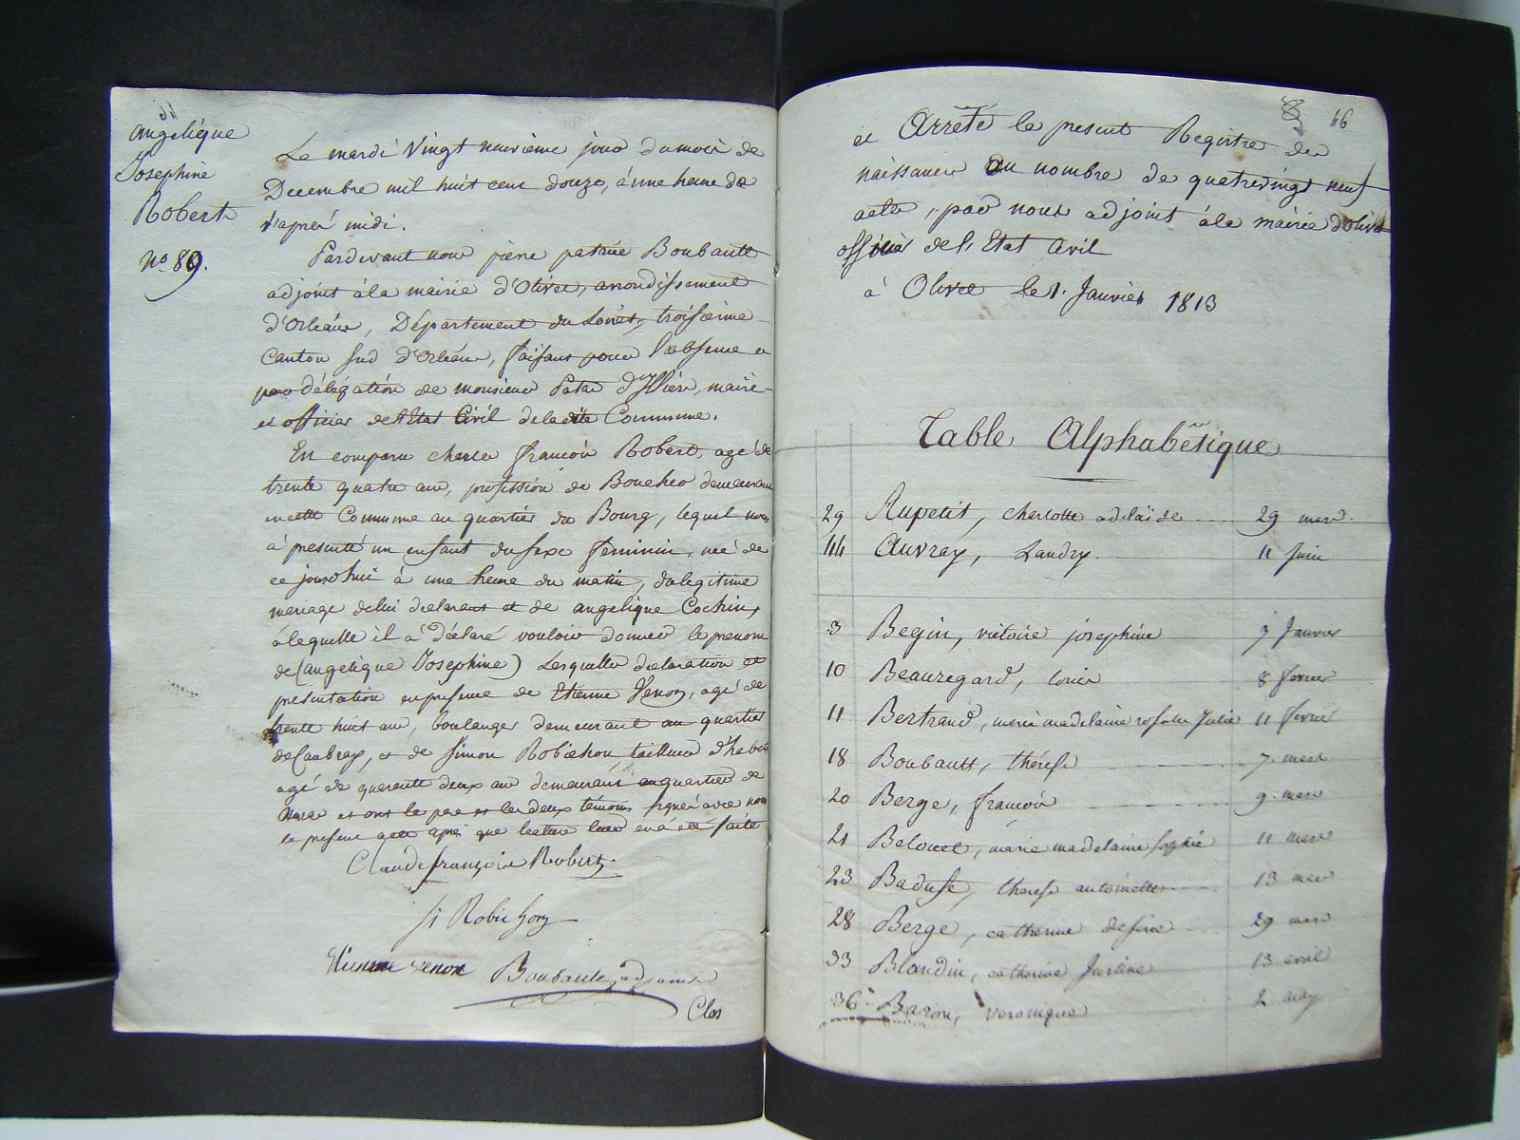 angelique
Josephine
Robert
no. 89.
Le mardi Vingt neuvieme jour du mois de
Decembre mil huit cent douze, à une heure de
d'aprés midi.
Pardevant nous pierre Boubault
adjoint à la mairie d'Olivet, arrondissement
d'Orléans, Département du Loiret, troisieme
Canton sud d'Orléans, faisant pour l'absence et
par délégation de monsieur Patas d'Illiers, maire
et officier de l'Etat Civil de ladite Commune.
En comparu charles francois Robert, agé de
trente quatre ans, profession de Boucher demeurant
en cette Commune au quartier du Bourg, lequel nous
à presenté un enfant du sexe feminin, née de
ce jourd'hui à une heure du matin, de legitime
mariage de lui declarant et de angelique Cochin,
à laquelle il à déclaré vouloir donner le prenom
de (angelique Josephine) Lesquelles declaration et
presentation en presence de Etienne Venon, agé de
trente huit ans, boulanger demeurant au quartier
de Caubray, et de Simon Robichon tailleur d'habit
agé de quarante deux ans demeurant au quartier de
et ont le pere et les deux témoins signés avec nous
le present acte aprés que lecture leur en à été faite
Claude françois Robert.
Si Robichon
Etienne venon
Boubault, adjoint
Clos
66
et Arrêté le present Registre des
naissances au nombre de quatrevingt neuf
actes, par nous adjoint à la mairie d'olivet
officier de l'Etat Civil
à Olivet le 1. Janvier 1813
Table Alphabétique
29 Aupetit, cherlotte adelaïde 29 mars.
44 Auvray, Landry. 11 Juin
3 Begin, victoire josephine 3 Janvier
10 Beauregard, louis 8 fevrier
11 Bertrand, marie madelaine rosalie Julie 11 fevrier
18 Boubault, thérese 7. mars
20 Berge, francois 9. mars
21 Belouet, marie madelaine sophie 11 mars
23 Baduse, therese antoinette 13 mars
28 Bergé, catherine desirée 29 mars
33 Blandin, catherine Justine 13 avril
36 Baron, veronique 2 may